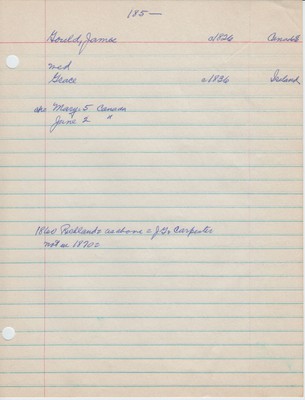 185—
Gould, James c1826 Canada
md
Grace c1836 Ireland
chn Mary 5 Canada
Jane 2 "
1860 Rutland as above = J G, Carpenter
not in 1870c